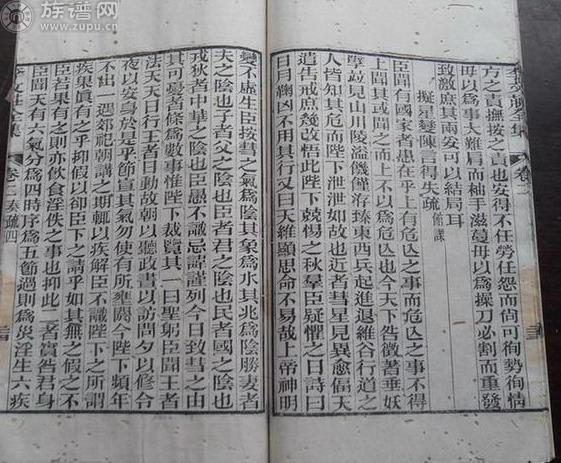 族谱网
www.zupu.cn
方之責撫按之責也安得不任勞任怨而尚可徇勢徇情
毋以爲事大難肩而袖手滋蔓毋以爲操刀必割而重發
致激庶其兩安可以結局耳
擬星變陳言得失疏 館課
臣聞有國家者患在乎上有危亾之事不得
上聞其或聞之而上不以爲危亾也今天下咎徵著垂妖
孼竝見山川陵溢饑饉洊臻東西兵起進退維谷行道之
人皆知其危而陛下泄泄如故也近者彗星見異愈偪天
遣告戒庶幾改悟此陛下兢惕之秋羣臣疑懼之日詩曰
日月鞠凶不用其行又曰天維顯思命不易哉上帝神明
變不虛生臣按彗之氣爲陰其象爲水其兆爲陰勝妻者
夫之陰也子者父之陰也臣者君之陰也民者國之陰也
戎狄者中華之陰也臣愚不識忌諱謹列今日致彗之由
其可憂者條爲數事惟陛下裁覽其一曰聖躬臣聞王者
法天天日行王者日動故朝以聽政晝以訪問夕以修令
夜以安身於是乎節宣其氣勿使有所壅閼今陛下頻年
不出一遇郊祀朝講之期輒以疾解臣不識陛下之所謂
疾果眞有之乎抑假以卻臣下之請乎如其無之假之不
臣若果有之則亦飲食淫佚之事也抑此二者實咎君身
臣聞天有六氣分爲四時序爲五節過則爲災淫生六疾
全集
卷二 奏疏 四